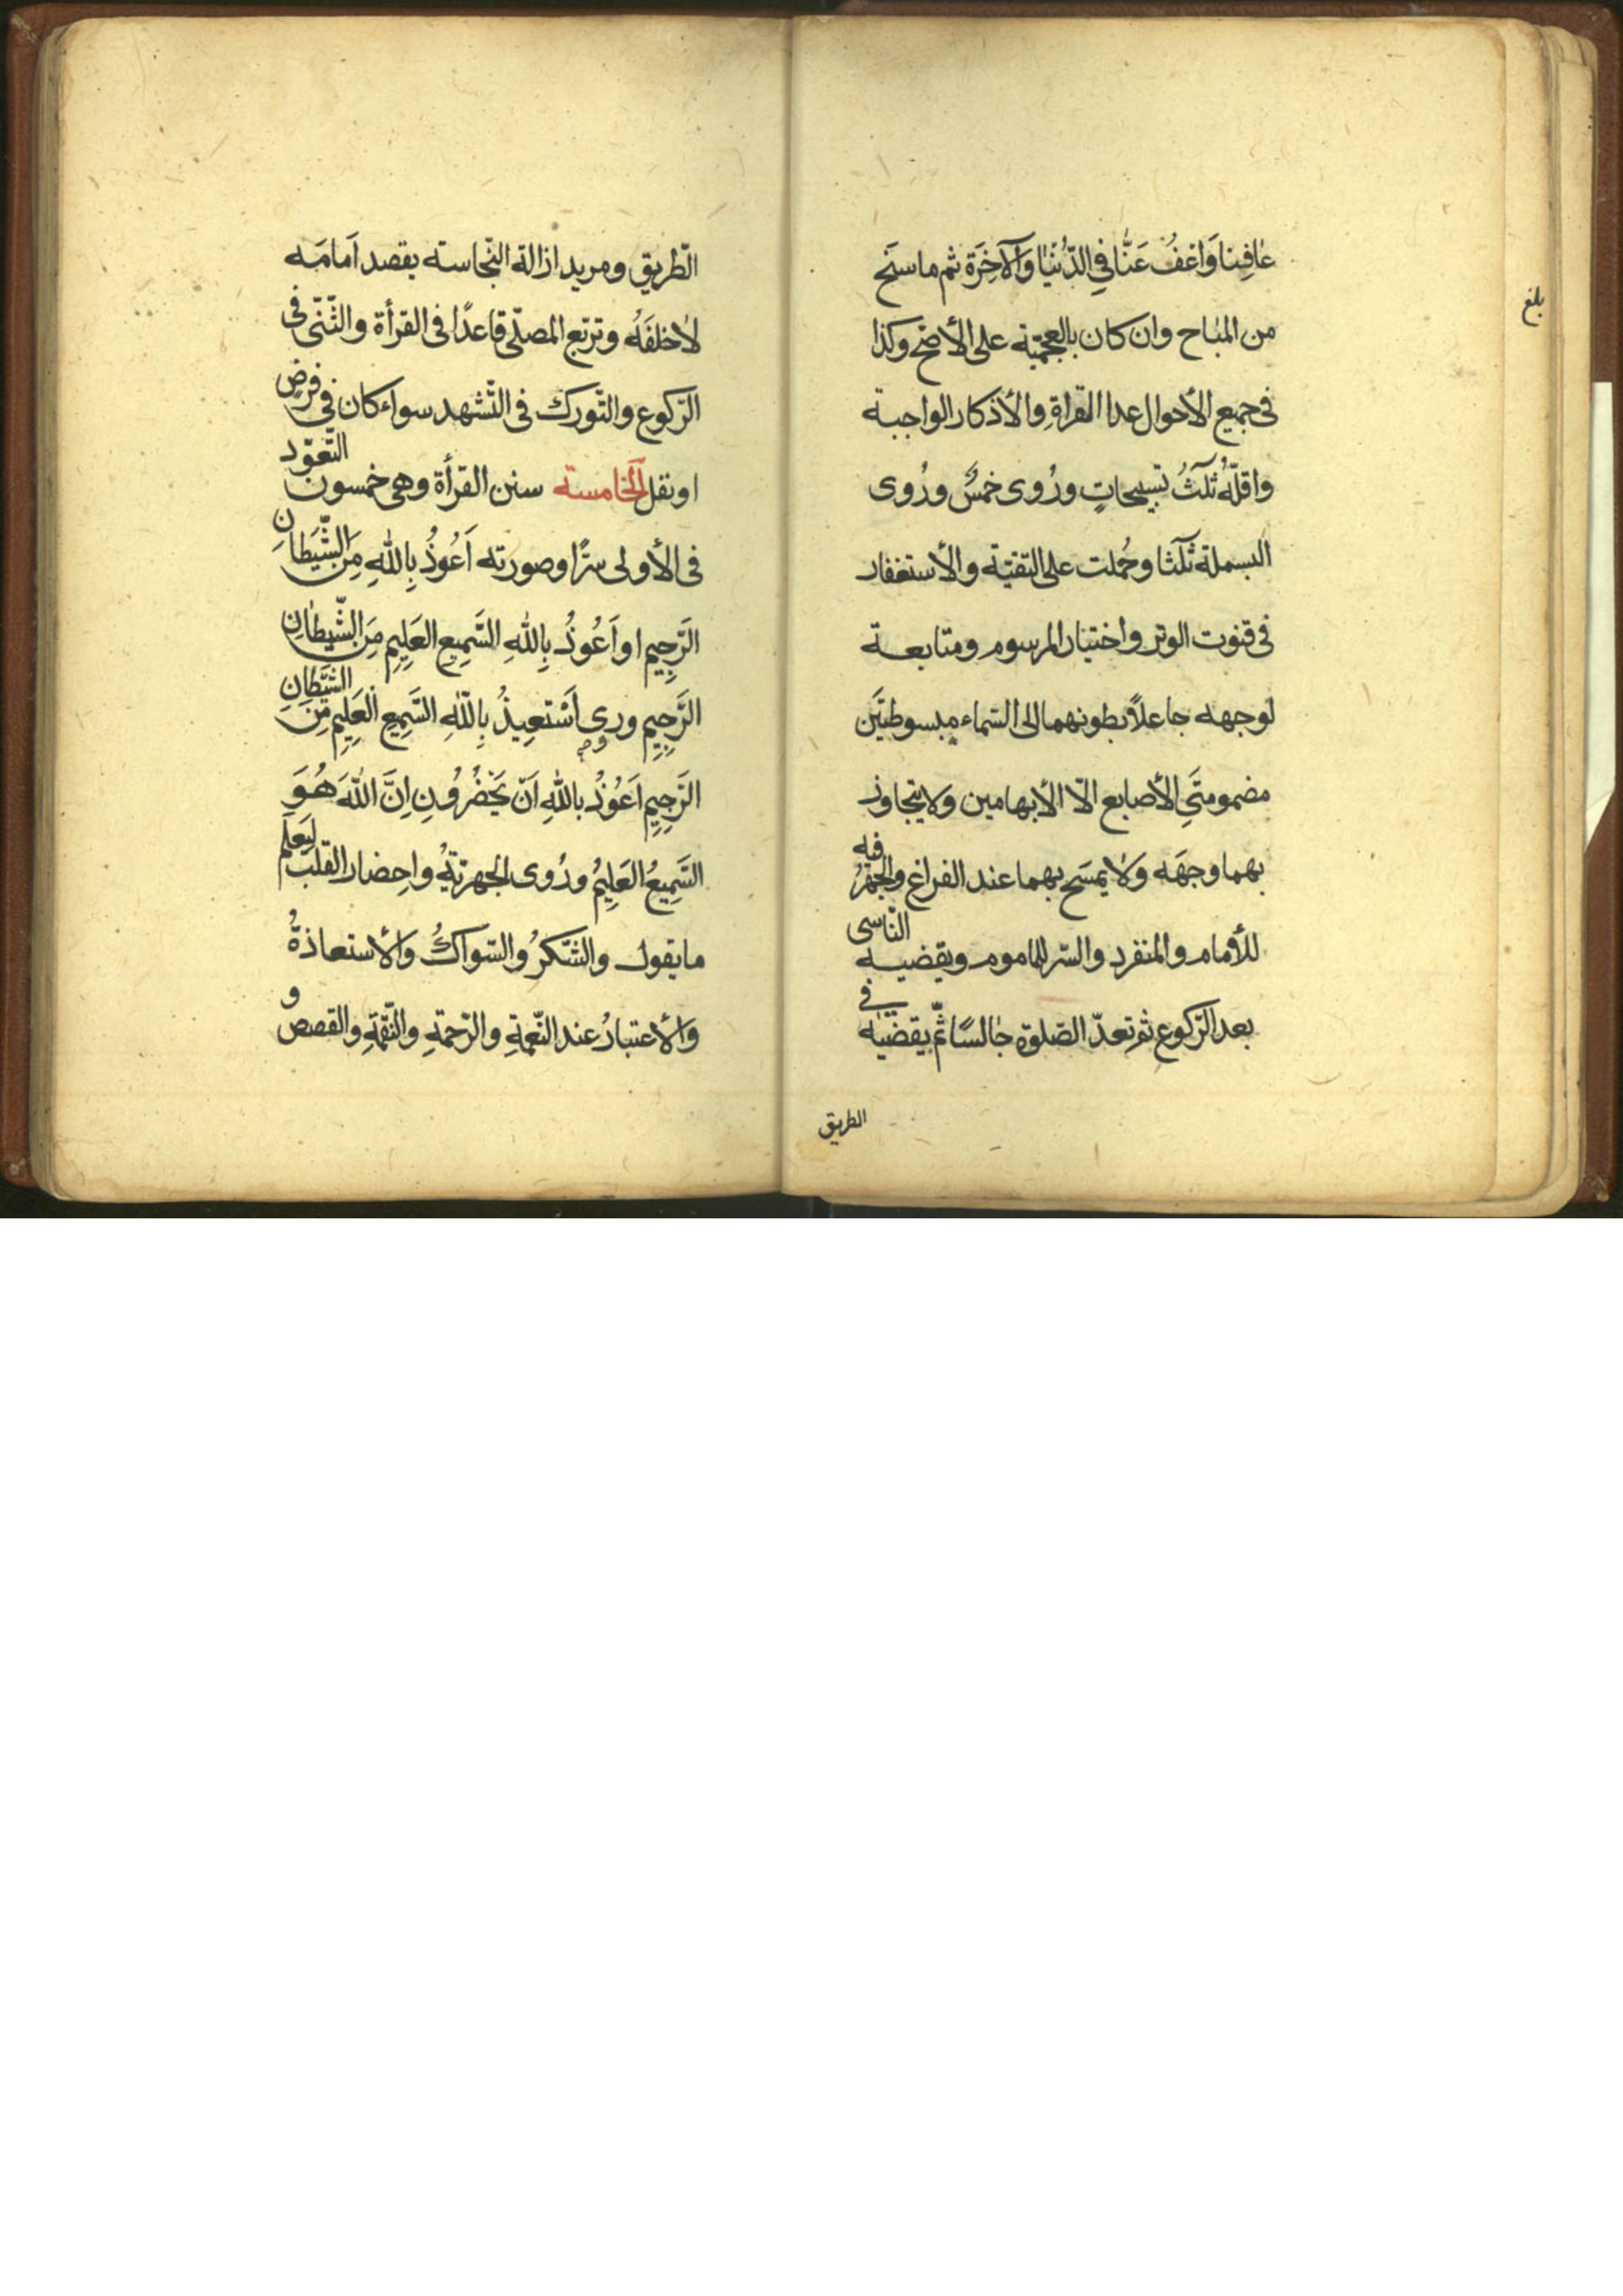 عٰافِنا وَاعْفُ عَنَّا فِي الدُّنْيٰا وَالآخِرَة ثم ما سنَح
من المبٰاح وان كان بالعجميّة على الأصَحّ وكذا
فى جميع الأحوال عدا القراةِ والأذكار الواجبة
واقلّهُ ثلٰثُ تسبيحاتٍ ورُوى خمسٌ ورُوى
البسملة ثلٰثا وحُملت على التقيّة والأستغفار
فى قنوت الوتر واختيار المرسوم ومتابعة
لوجهه جاعلاً بطونهما الى السّماء مبسوطتَين
مضمومتَيِ الأصابع الّا الأبهامين ولا يتجاوز
بهما وجهَه وَلا يمسَح بهما عند الفراغ والجهْرُ فيه
للأمام والمنفرد والسّر للماموم ويقضيه النّاسى
بعد الرّكوع ثم تعدّ الصّلوة جٰالسًا ثمّ يقضيٰه في
الطريق
بلغ
الطّريق ومريد ازالة النّجاسته يقصد اَمامَه
لاٰ خلفَهُ وتربّع المصلّى قاعدًا فى القرأة والثّنى فى
الرّكوع والتّورك فى التّشهد سواء كان فى فرضٍ
او نفل الخامسته سنن القرأة وهى خمسون التّعوّد
فى الأولى سرًّا وصورته اَعُوذُ بِاللهِ مِنَ الشَّيَطانِ
الرَّجِيمِ او اَعُوذُ بِاللهِ السَّمِيعِ العَلِيمِ مِنَ الشَّيطٰانِ
الرَّجِيمِ وروى اَسْتعِيذُ بِاللّٰهِ السَّمِيعِ العَلِيمِ مِنَ الشَّيْطٰانِ
الرَّجِيمِ اَعُوذُ باللهِ اَنْ يَحْضُرُونِ اِنَّ اللهَ هُوَ
السَّمِيعُ العَلِيمُ ورُوى الجهريّةُ واحِضار القلب ليَعلَم
ما يقول والشّكرُ والسّواكُ وَالأستعاذةُ
وَالأعتبارُ عند النّعمةِ والرّحمةِ والنّقمَةِ والقصص و